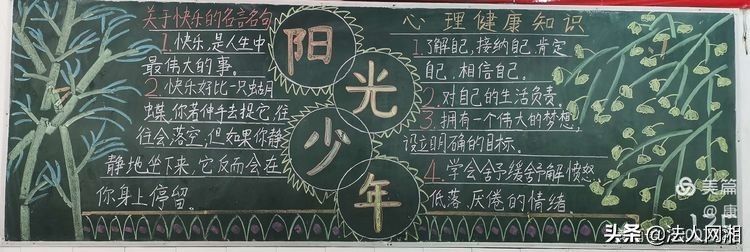 关于快乐的名言名句
1.快乐,是人生中
最伟大的事。
2.快乐好比一只蝴
蝶,你若伸手去捉它,往
往会落空,但如果你静
静地坐下来,它反而会在
你身上停留。
阳
光
少
年
心理健康知识
1.了解自己,接纳自己,肯定
自己,相信自己。
2.对自己的生活负责。
3.拥有一个伟大的梦想,
设立明确的目标。
4.学会舒缓舒解愤怒、
低落、厌倦的情绪
美篇
@康
头条@法人网湘